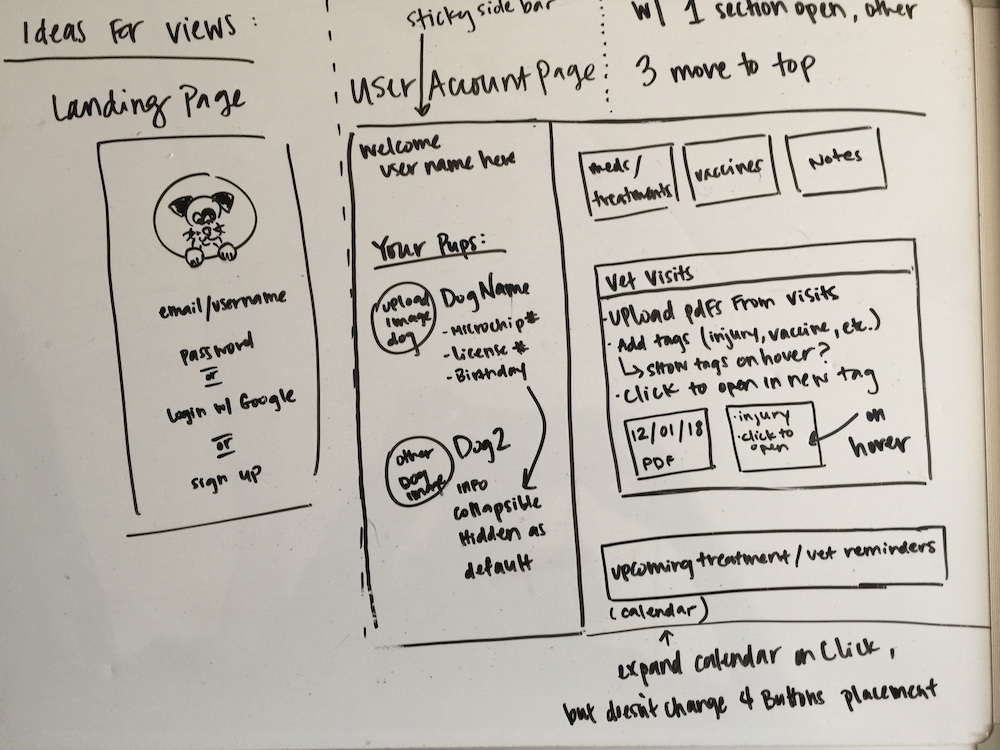 Ideas For views:
Landing Page
email/username
password
or
Login w/ Google
or
sign up
sticky side bar
User/Account Page:
w/ 1 section open, other
3 move to top
Welcome
user name here
Your Pups:
upload
image
dog
Dog Name
-Microchip#
-License #
-Birthday
other
Dog
image
Dog2
INFO
collapsible
Hidden as
default
meds/
treatments
vaccines
Notes
Vet Visits
·Upload pdfs From visits
·Add tags (injury, vaccine, etc.)
↳show tags on hover?
·Click to open in new tag
12/01/18
PDF
·injury
·click to
open
on
hover
upcoming treatment/vet reminders
(calendar)
expand calendar on Click,
but doesn't change 4 Buttons placement